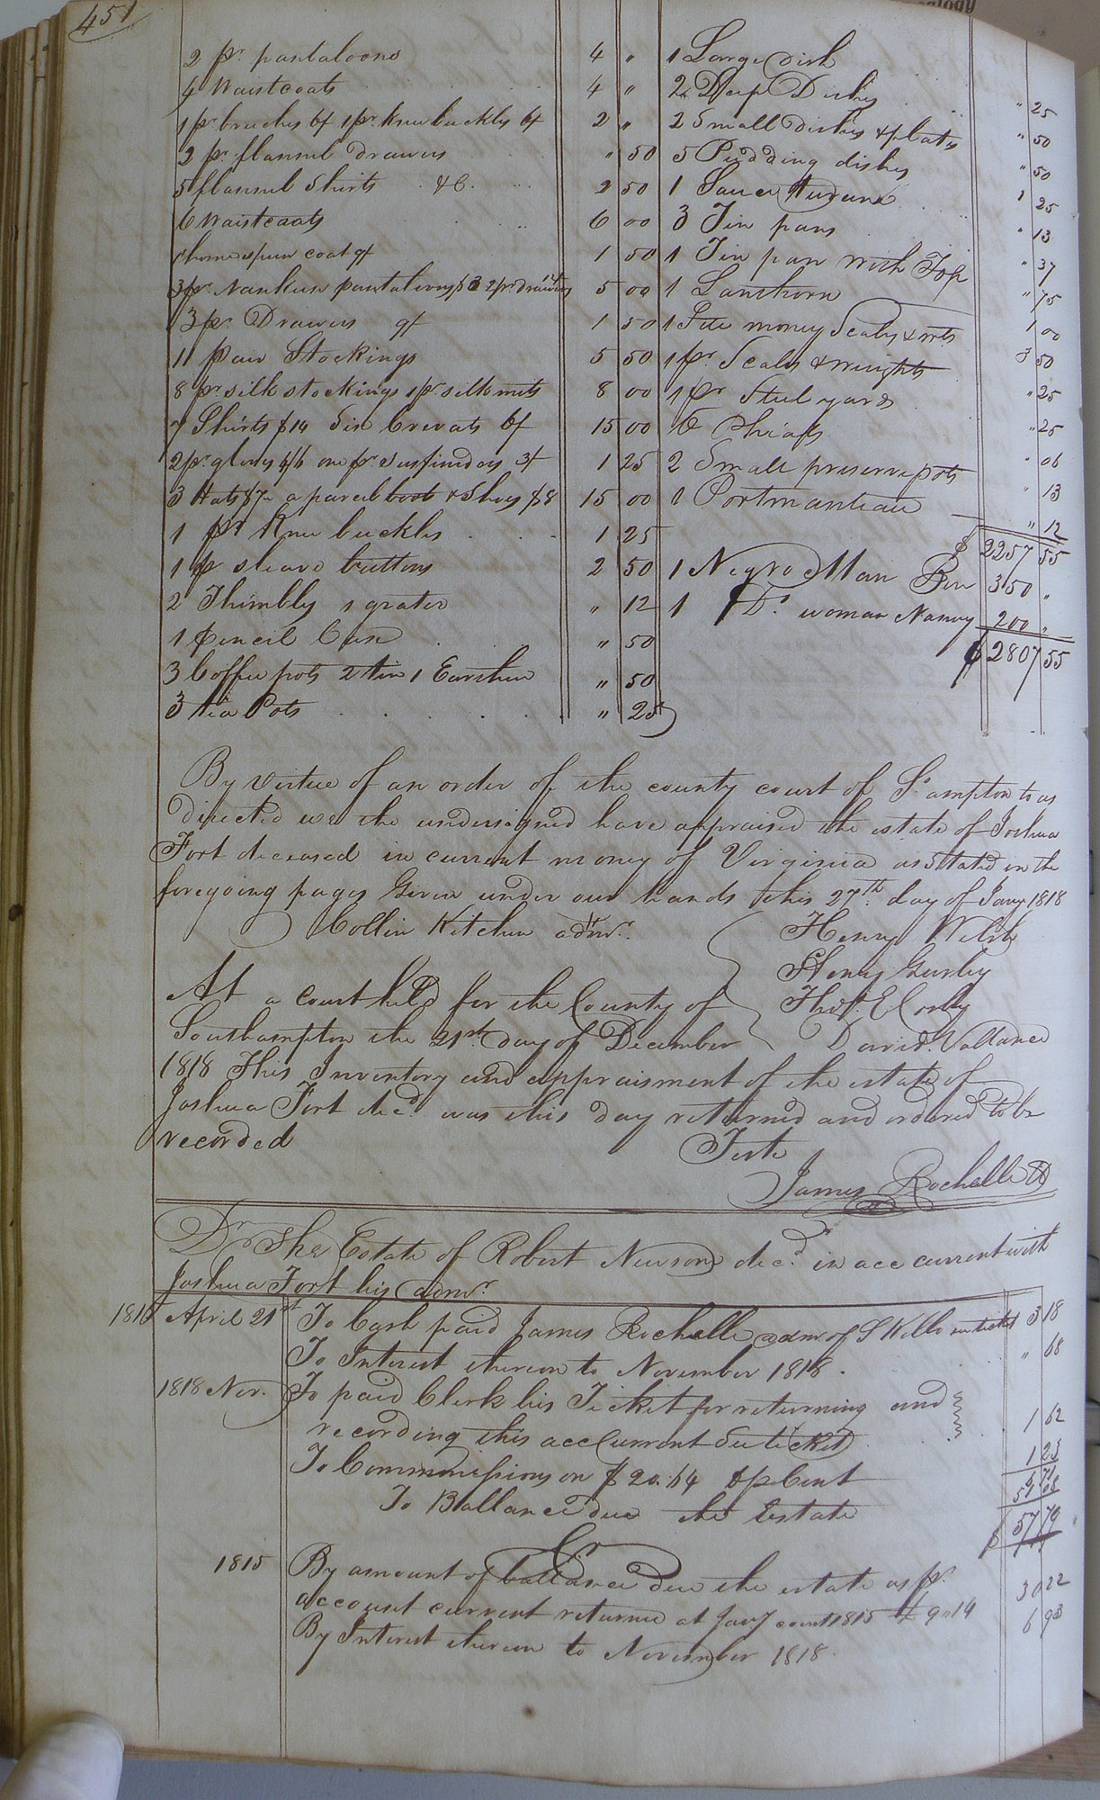 451
2 pr. pantaloons 4 "
4 Waistcoats 4 "
1 pr. breeches 6/ 1 pr. knee buckles 6/ 2 "
2 pr. flannel drawers " 50
5 flannel Shirts &C. 2 50
6 Waistcoats 6 00
1 homespun coat 9/ 1 50
3 pr. Nankeen pantaloons $3 2 pr. 5 00
3 pr. Drawers 9/ 1 50
11 pair Stockings 5 50
8 pr. silk stockings 1 pr. silk mits 8 00
7 Shirts $14 Six Cravats 6/ 15 00
2 pr. gloves 4/6 one pr. suspenders 3/ 1 25
3 Hats $7 a parcel boots & Shoes $8 15 00
1 pr Knee buckles 1 25
1 pr sleave buttons 2 50
2 Thimbles 1 grater " 12
1 Pencil Case " 50
3 Coffee pots 2 tin 1 Earthen " 50
3 tea Pots " 25
1 Large dish " 25
2 Deep Dishes " 50
2 Small dishes & plates " 50
5 Pudding dishes 1 25
1 Sauce " 13
3 Tin pans " 37
1 Tin pan with Top " 75
1 Lanthorn 1 00
1 Sett money Scales & wts 3 50
1 pr. Scales & weights " 25
1 pr Steelyards " 25
6 Phials " 06
2 Small preserve pots " 13
1 Portmanteau " 12
$ 2257 55
1 Negro Man Ben 350 "
1 Do. woman Nancy 200 "
$ 2807 55
By virtue of an order of the county court of So.ampton to us
directed we the undersigned have appraised the estate of Joshua
Fort deceased in current money of Virginia as stated in the
foregoing pages Given under our hands this 27th day of Jany 1818
Collin Kitchen admr.
Henry
Henry Gurley
Thos. E Corby
David Vallance
At a court held for the County of
Southampton the 21st day of December
1818 This Inventory and appraisment of the estate of
Joshua Fort decd. was this day returned and ordered to be
recorded
Teste
James Rochelle
Dr The Estate of Robert Newsom decd. in acc current with
Joshua Fort his admr.
April 21st To Cash paid James Rochelle admr of S Wills 3 18
To Interest thereon to November 1818. " 68
1818 Nov. To paid Clerk his Ticket for returning and
recording this acc Current See ticket 1 62
To Commissions on $20.64 pr Cent 1 23
To Ballance due the Estate
$ 57 79
Cr
1815 By amount of ballance due the estate as pr.
account current returned at Jany court 1815 £ 9..14 30 22
By Interest thereon to November 1818. 6 93